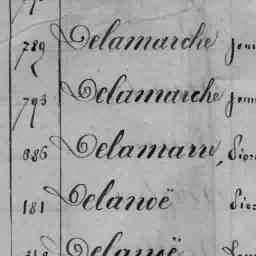 789 Delamarche
793 Delamarche
686 Delamarre,
181 Delanoë
Delanoë